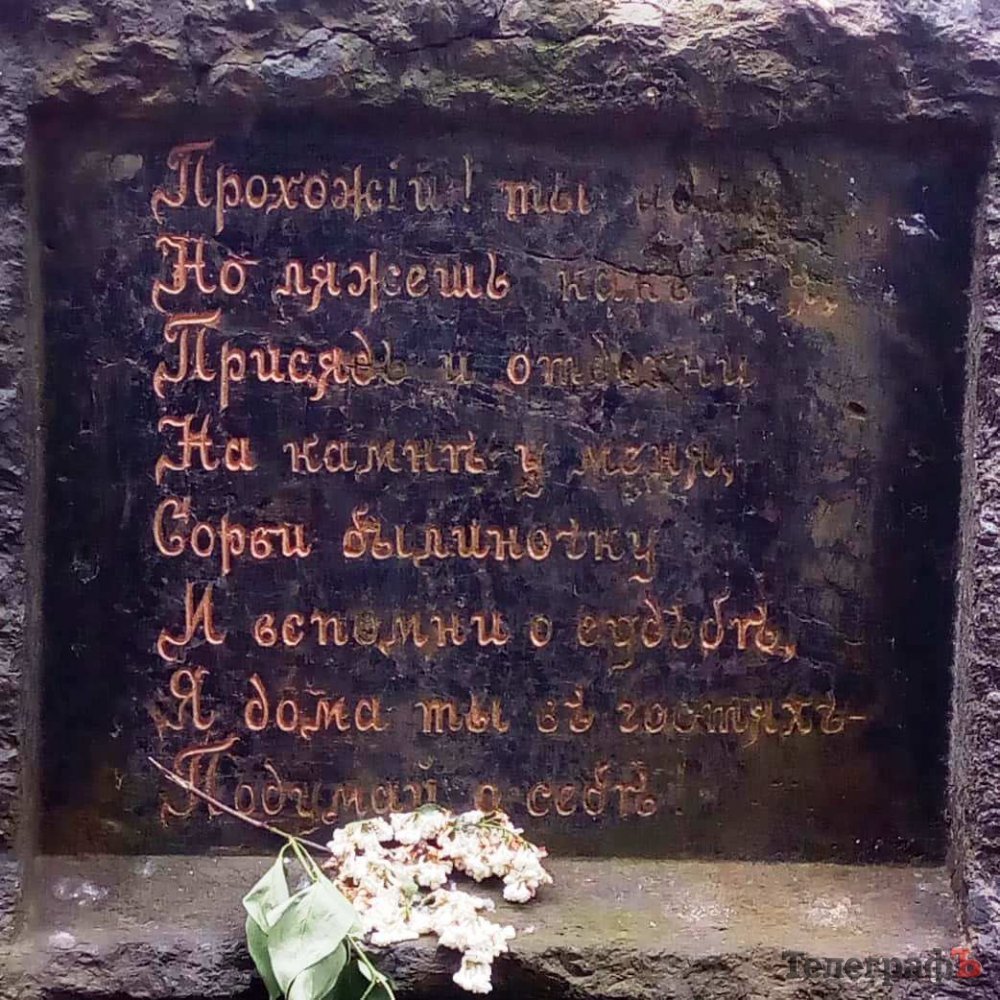 Прохожій! ты
Но ляжешь какъ и я,
Присядь и отдохни
На камнѣ у меня,
Сорви былиночку
И вспомни о судьбѣ,
Я дома ты въ гостяхъ-
Подумай о себѣ
ТелеграфЪ